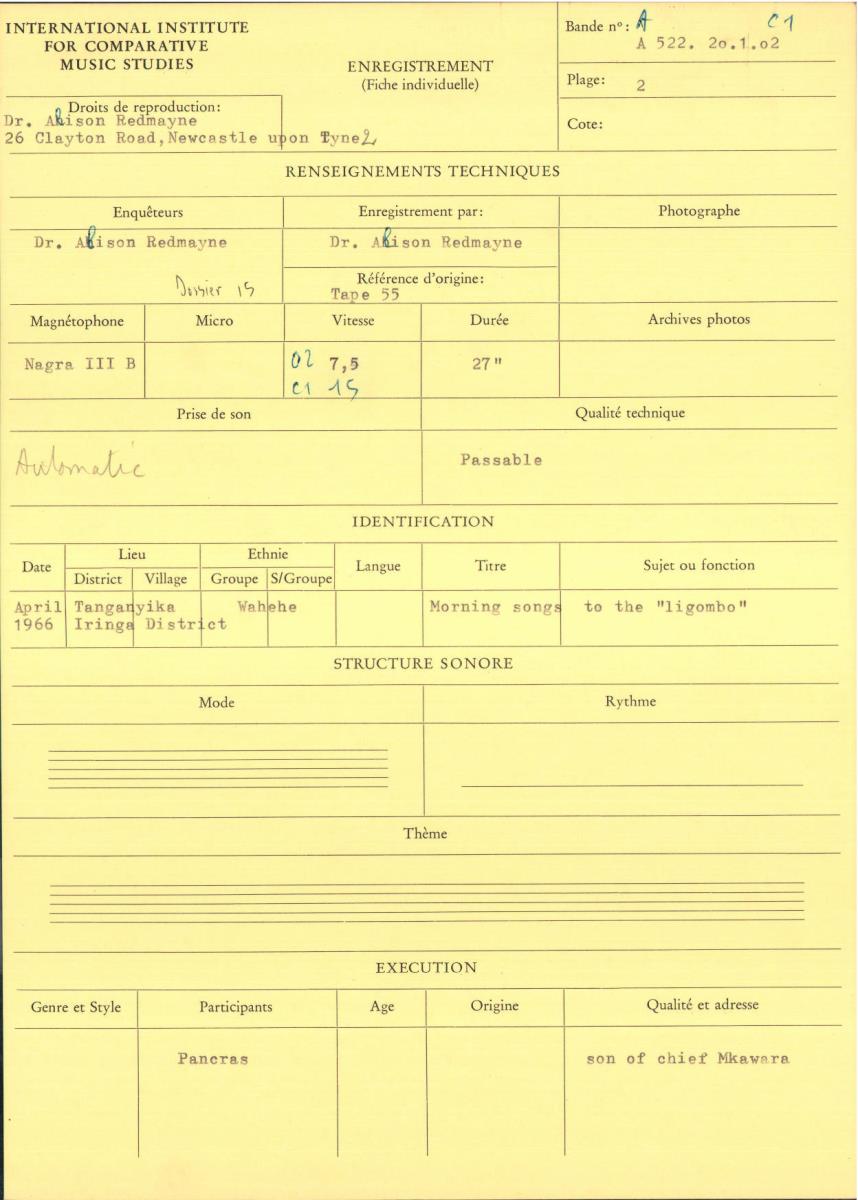 INTERNATIONAL INSTITUTE
FOR COMPARATIVE
MUSIC STUDIES
ENREGISTREMENT
(Fiche individuelle)
Bande nº: A C1
A 522. 2o.1.o2
Plage: 2
Cote:
Droits de reproduction:
Dr. Alison Redmayne
26 Clayton Road,Newcastle upon Tyne 2
RENSEIGNEMENTS TECHNIQUES
Enquêteurs
Enregistrement par:
Photographe
Dr. Alison Redmayne
Dr. Alison Redmayne
Dossier 15
Référence d'origine:
Tape 55
Magnétophone
Micro
Vitesse
Durée
Archives photos
Nagra III B
02 7,5
C1 15
27"
Prise de son
Qualité technique
Automatic
Passable
IDENTIFICATION
Date
Lieu
District
Village
Ethnie
Groupe
S/Groupe
Langue
Titre
Sujet ou fonction
April Tanganyika Wahehe Morning songs to the "ligombo"
1966 Iringa District
STRUCTURE SONORE
Mode
Rythme
Thème
EXECUTION
Genre et Style
Participants
Age
Origine
Qualité et adresse
Pancras
son of chief Mkawara